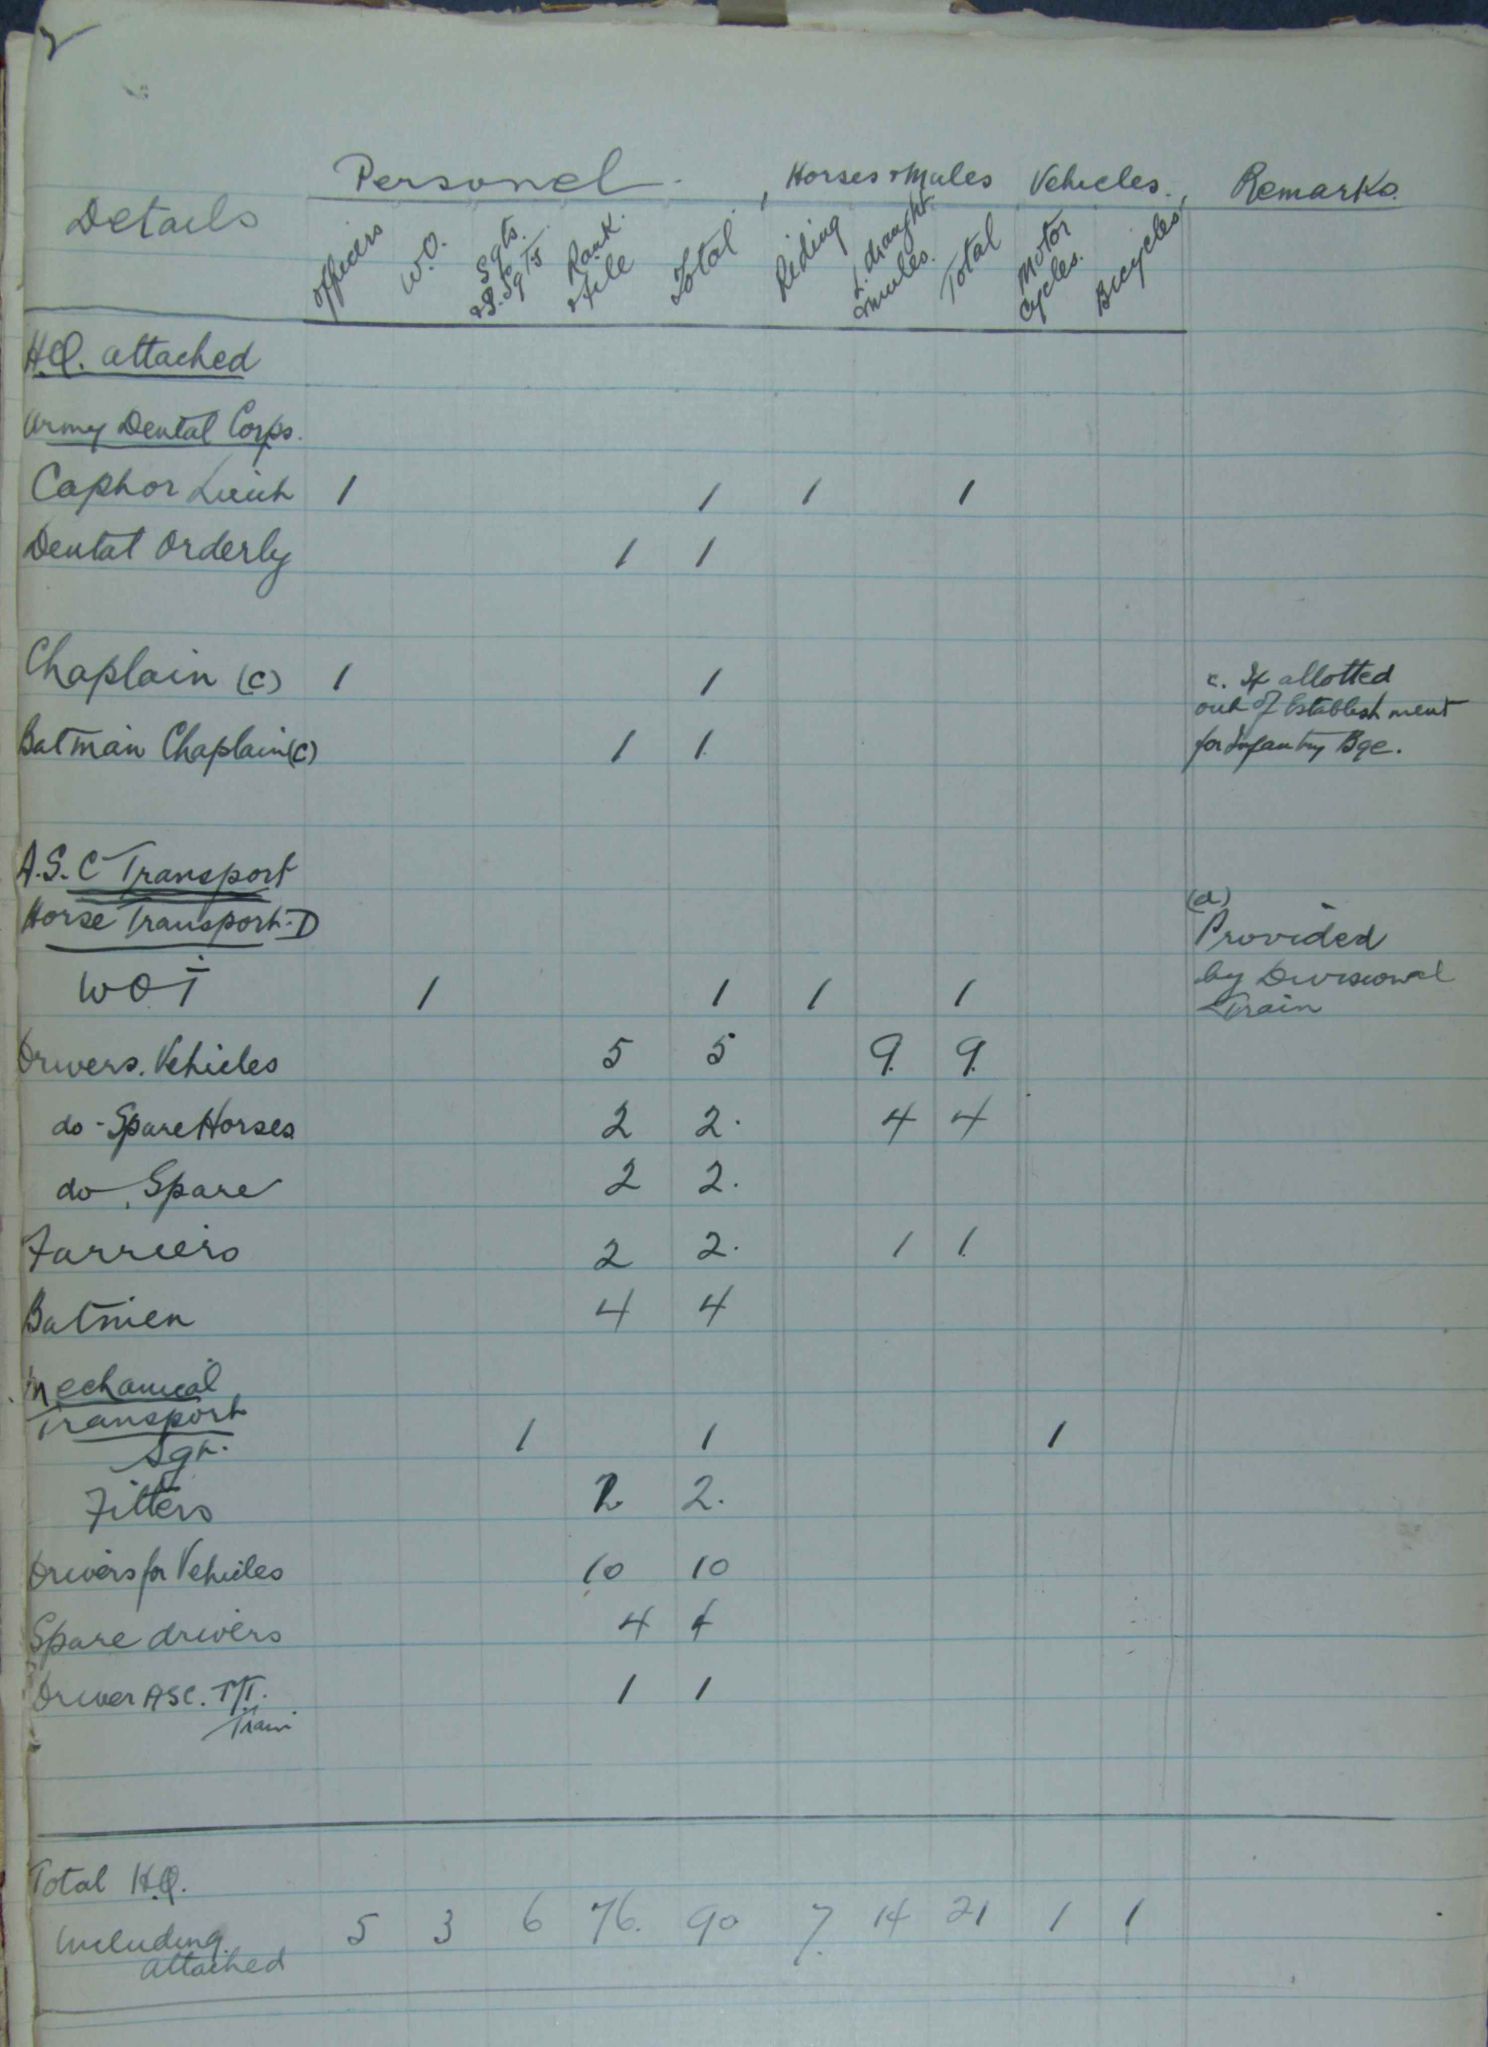 2
Personel. Horses & Mules Vehicles. Remarks.
Details
Officers W.O. Sgts. & S. Sgts Rank & File Total Riding L. draught & mules. Total Motor Cycles. Bicycles
H.Q. attached
Army Dental Corps.
Capt or Lieut 1 1 1 1
Dental Orderly 1 1
Chaplain (C) 1 1 c. If allotted
out of Establishment
Batman Chaplain (C) 1 1 for Infantry Bge.
A.S.C Transport
(d)
Horse Transport-D Provided
WO I 1 1 1 1 by Divisional
Train
Drivers. Vehicles 5 5 9. 9.
do - Spare Horses 2 2. 4 4
do Spare 2 2.
Farriers 2 2. 1 1
Batmen 4 4
Mechanical
Transport
Sgt. 1 1 1
Fitters 2 2.
Drivers for Vehicles 10 10
Spare drivers 4 4
Driver ASC. 1 1
Train
Total H.Q.
Including 5 3 6 76. 90 7. 14 21 1 1
attached